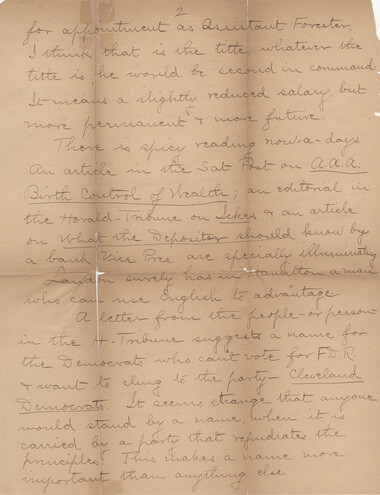 2
for appointment as Assistant Forester,
I think that is the title whatever the
title is he would be second in command
It means a slightly reduced salary, but
more permanent & more future.
There is spicy reading now-a-days
An article in the Sat Post on A.A.A.
Birth Control of Wealth; an editorial in
the Herald-Tribune on Ickes & an article
on What the Depositor should know by
a bank Vice Pres. are specially illuminating
Landon surely has in Hamilton a man
who can use English to advantage
A letter from the people-or person-
in the H-Tribune suggests a name for
the Democrats who can't vote for F.D.R.
& want to cling to the party— Cleveland
Democrats. It seems strange that anyone
would stand by a name, when it is
carried by a party that repudiates the
principles! This makes a name more
important than anything else